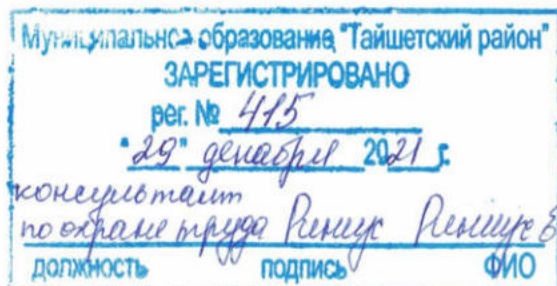 Муниципальное образование "Тайшетский район"
ЗАРЕГИСТРИРОВАНО
рег. № 415
"29" декабря 2021 г.
консультант
по охране труда
должность подпись ФИО